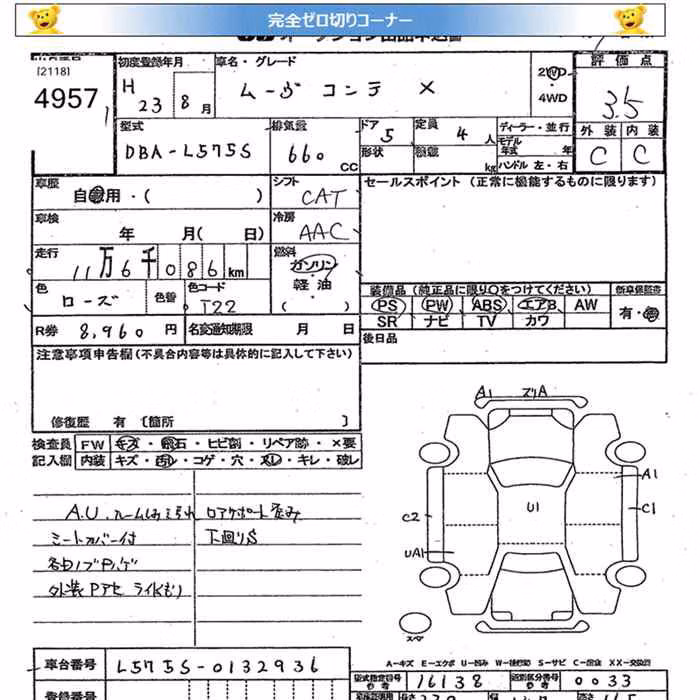 完全ゼロ切りコーナー
[2118]
4957
初度登録年月
H 23 8 月
車名・グレード
ムーヴ コンテ X
2WD
・
4WD
評価点
3.5
外装 内装
C C
型式
DBA-L575S
排気量
660 CC
ドア 5
形状
定員 4 人
積載 kg
ディーラー・並行
モデル年式 年
ハンドル 左・右
車歴
自 用・( )
シフト
CAT
セールスポイント (正常に機能するものに限ります)
車検
年 月( 日)
冷房
AAC
走行
11万6千086km
燃料
ガソリン
・
軽油
( )
色
ローズ
色替
色コード
T22
装備品 (純正品に限り○をつけてください)
PS PW ABS エアB AW
SR ナビ TV カワ
新車保証書
有・
R券 8,960 円
名変通知期限 月 日
後日品
注意事項申告欄(不具合内容等は具体的に記入して下さい)
修復歴 有 〔箇所 〕
検査員
記入欄
FW キズ・飛石・ヒビ割・リペア跡・×要
内装 キズ・汚れ・コゲ・穴・スレ・キレ・破レ
A.U.ルームしみ汚れ ロアサポート歪み
シートカバー付 下回りS
外装Pアセ ライトくもり
A1 ズリA
A1
U1
C2
C1
UA1
スペア
A-キズ E-エクボ U-凹み W-補修跡 S-サビ C-腐食 XX-交換済
車台番号
L575S-0132936
型式指定番号
16138
類別区分番号
0033
登録番号